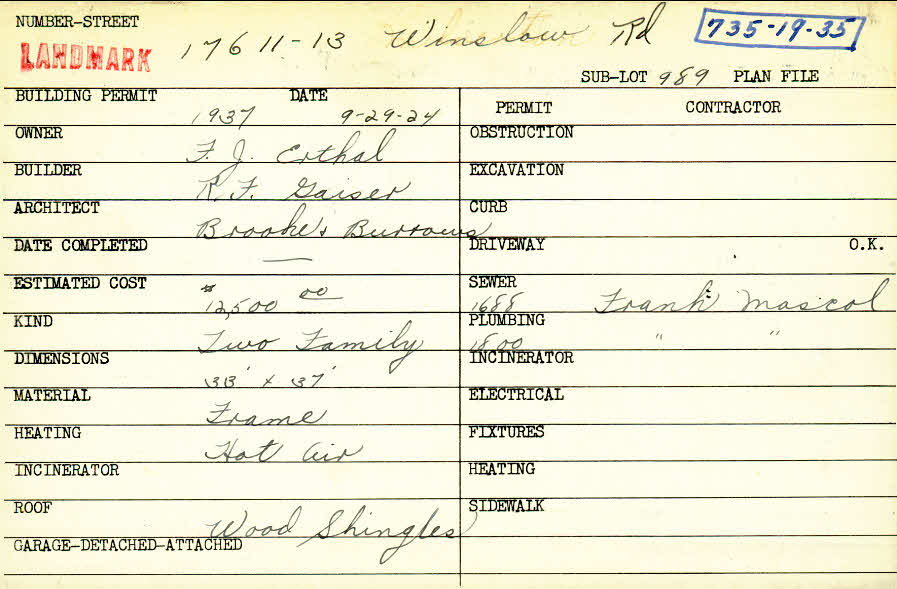 NUMBER-STREET
LANDMARK 17611-13 Winslow Rd 735-19-35
SUB-LOT 989 PLAN FILE
BUILDING PERMIT DATE
1937 9-29-24
OWNER
F. J. Erthal
BUILDER
R. F. Gaiser
ARCHITECT
Brooke & Burrows
DATE COMPLETED
—
ESTIMATED COST
$12,500 00
KIND
Two Family
DIMENSIONS
33' x 37'
MATERIAL
Frame
HEATING
Hot Air
INCINERATOR
ROOF
Wood Shingles
GARAGE-DETACHED-ATTACHED
PERMIT CONTRACTOR
OBSTRUCTION
EXCAVATION
CURB
DRIVEWAY O.K.
SEWER
1688 Frank Mascol
PLUMBING
1800 " "
INCINERATOR
ELECTRICAL
FIXTURES
HEATING
SIDEWALK